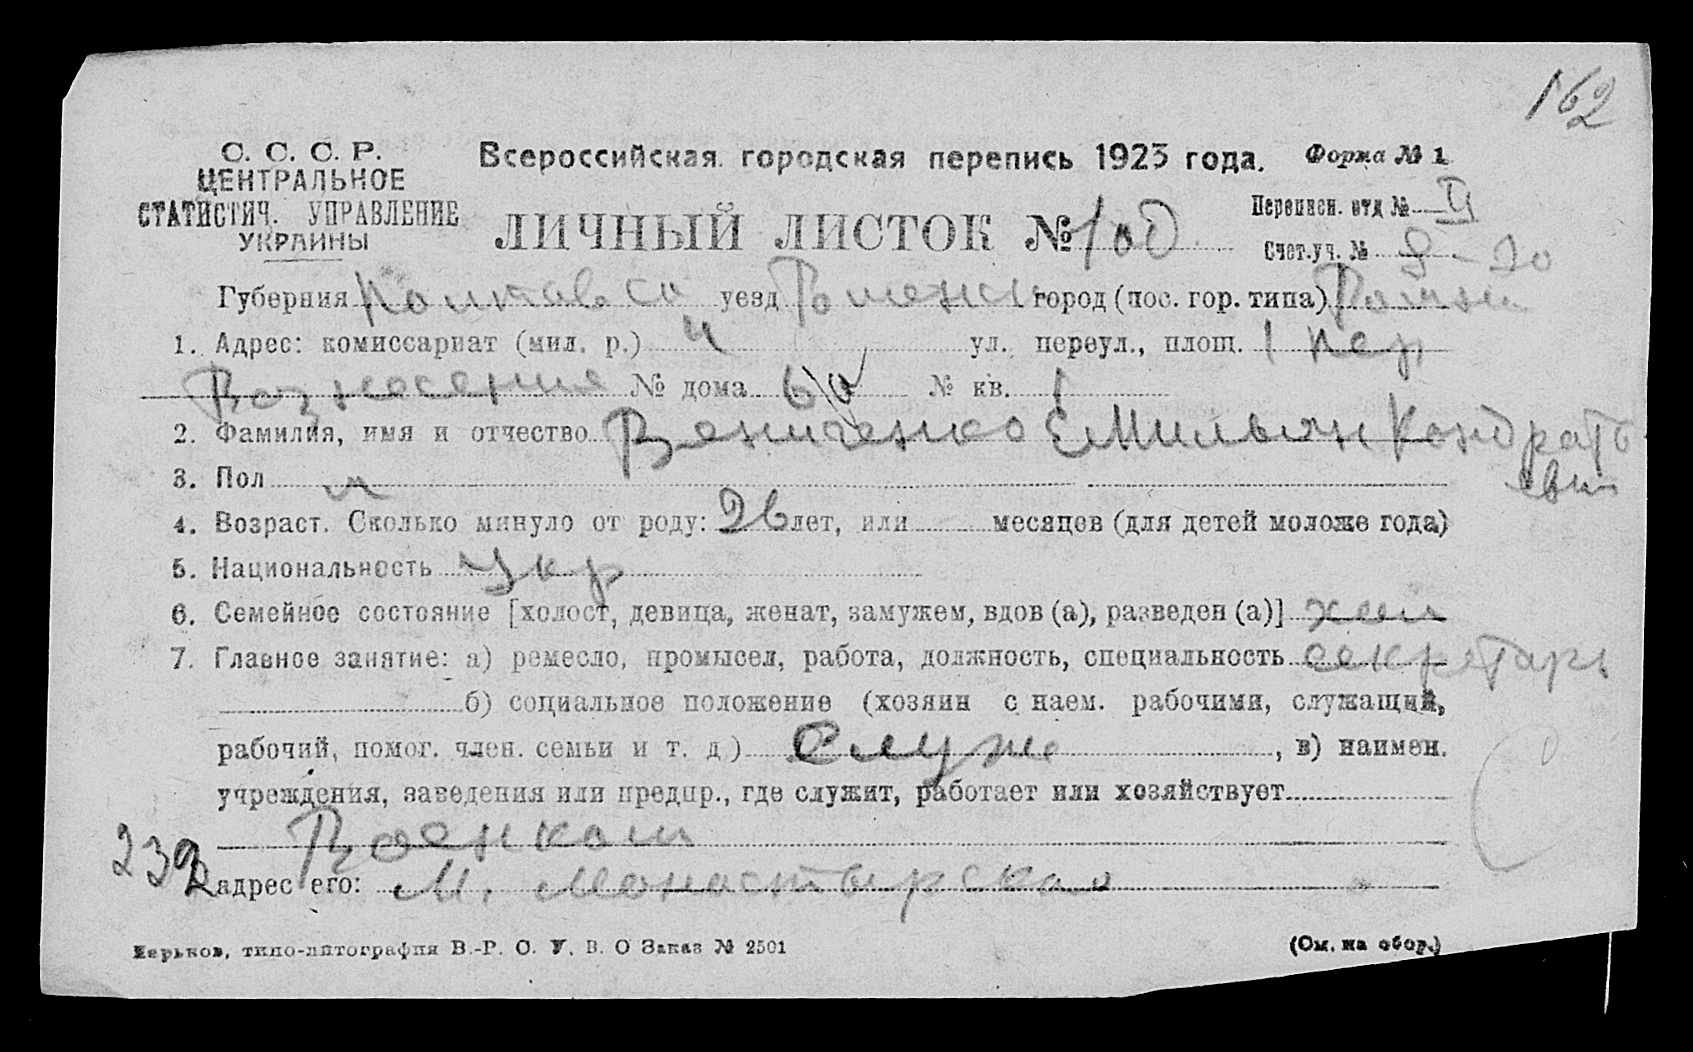 162
С. С. С. Р.
ЦЕНТРАЛЬНОЕ
СТАТИСТИЧ. УПРАВЛЕНИЕ
УКРАИНЫ
Всероссийская городская перепись 1923 года. Форма № 1
Переписн. отд № II
ЛИЧНЫЙ ЛИСТОК № 100
Счет.уч. № 9-20
Губерния Полтавск уезд Роменск город (пос. гор. типа) Ромны
1. Адрес: комиссариат (мил. р.) 4 ул., переул., площ. 1 пер
Вознесения № дома 6/а № кв. 1
2. Фамилия, имя и отчество Вениченко Емильян Кондрать
евич
3. Пол м
4. Возраст. Сколько минуло от роду: 26 лет, или месяцев (для детей моложе года)
5. Национальность Укр
6. Семейное состояние [холост, девица, женат, замужем, вдов (а), разведен (а)]
7. Главное занятие: а) ремесло, промысел, работа, должность, специальность секретарь
б) социальное положение (хозяин с наем. рабочими, служащий,
рабочий, помог. член. семьи и т. д) Служ , в) наимен.
учреждения, заведения или предпр., где служит, работает или хозяйствует
Военком
232 адрес его: М. Монастырская
Харьков, типо-литография В.-Р. О. У. В. О Заказ № 2501 (См. на обор.)